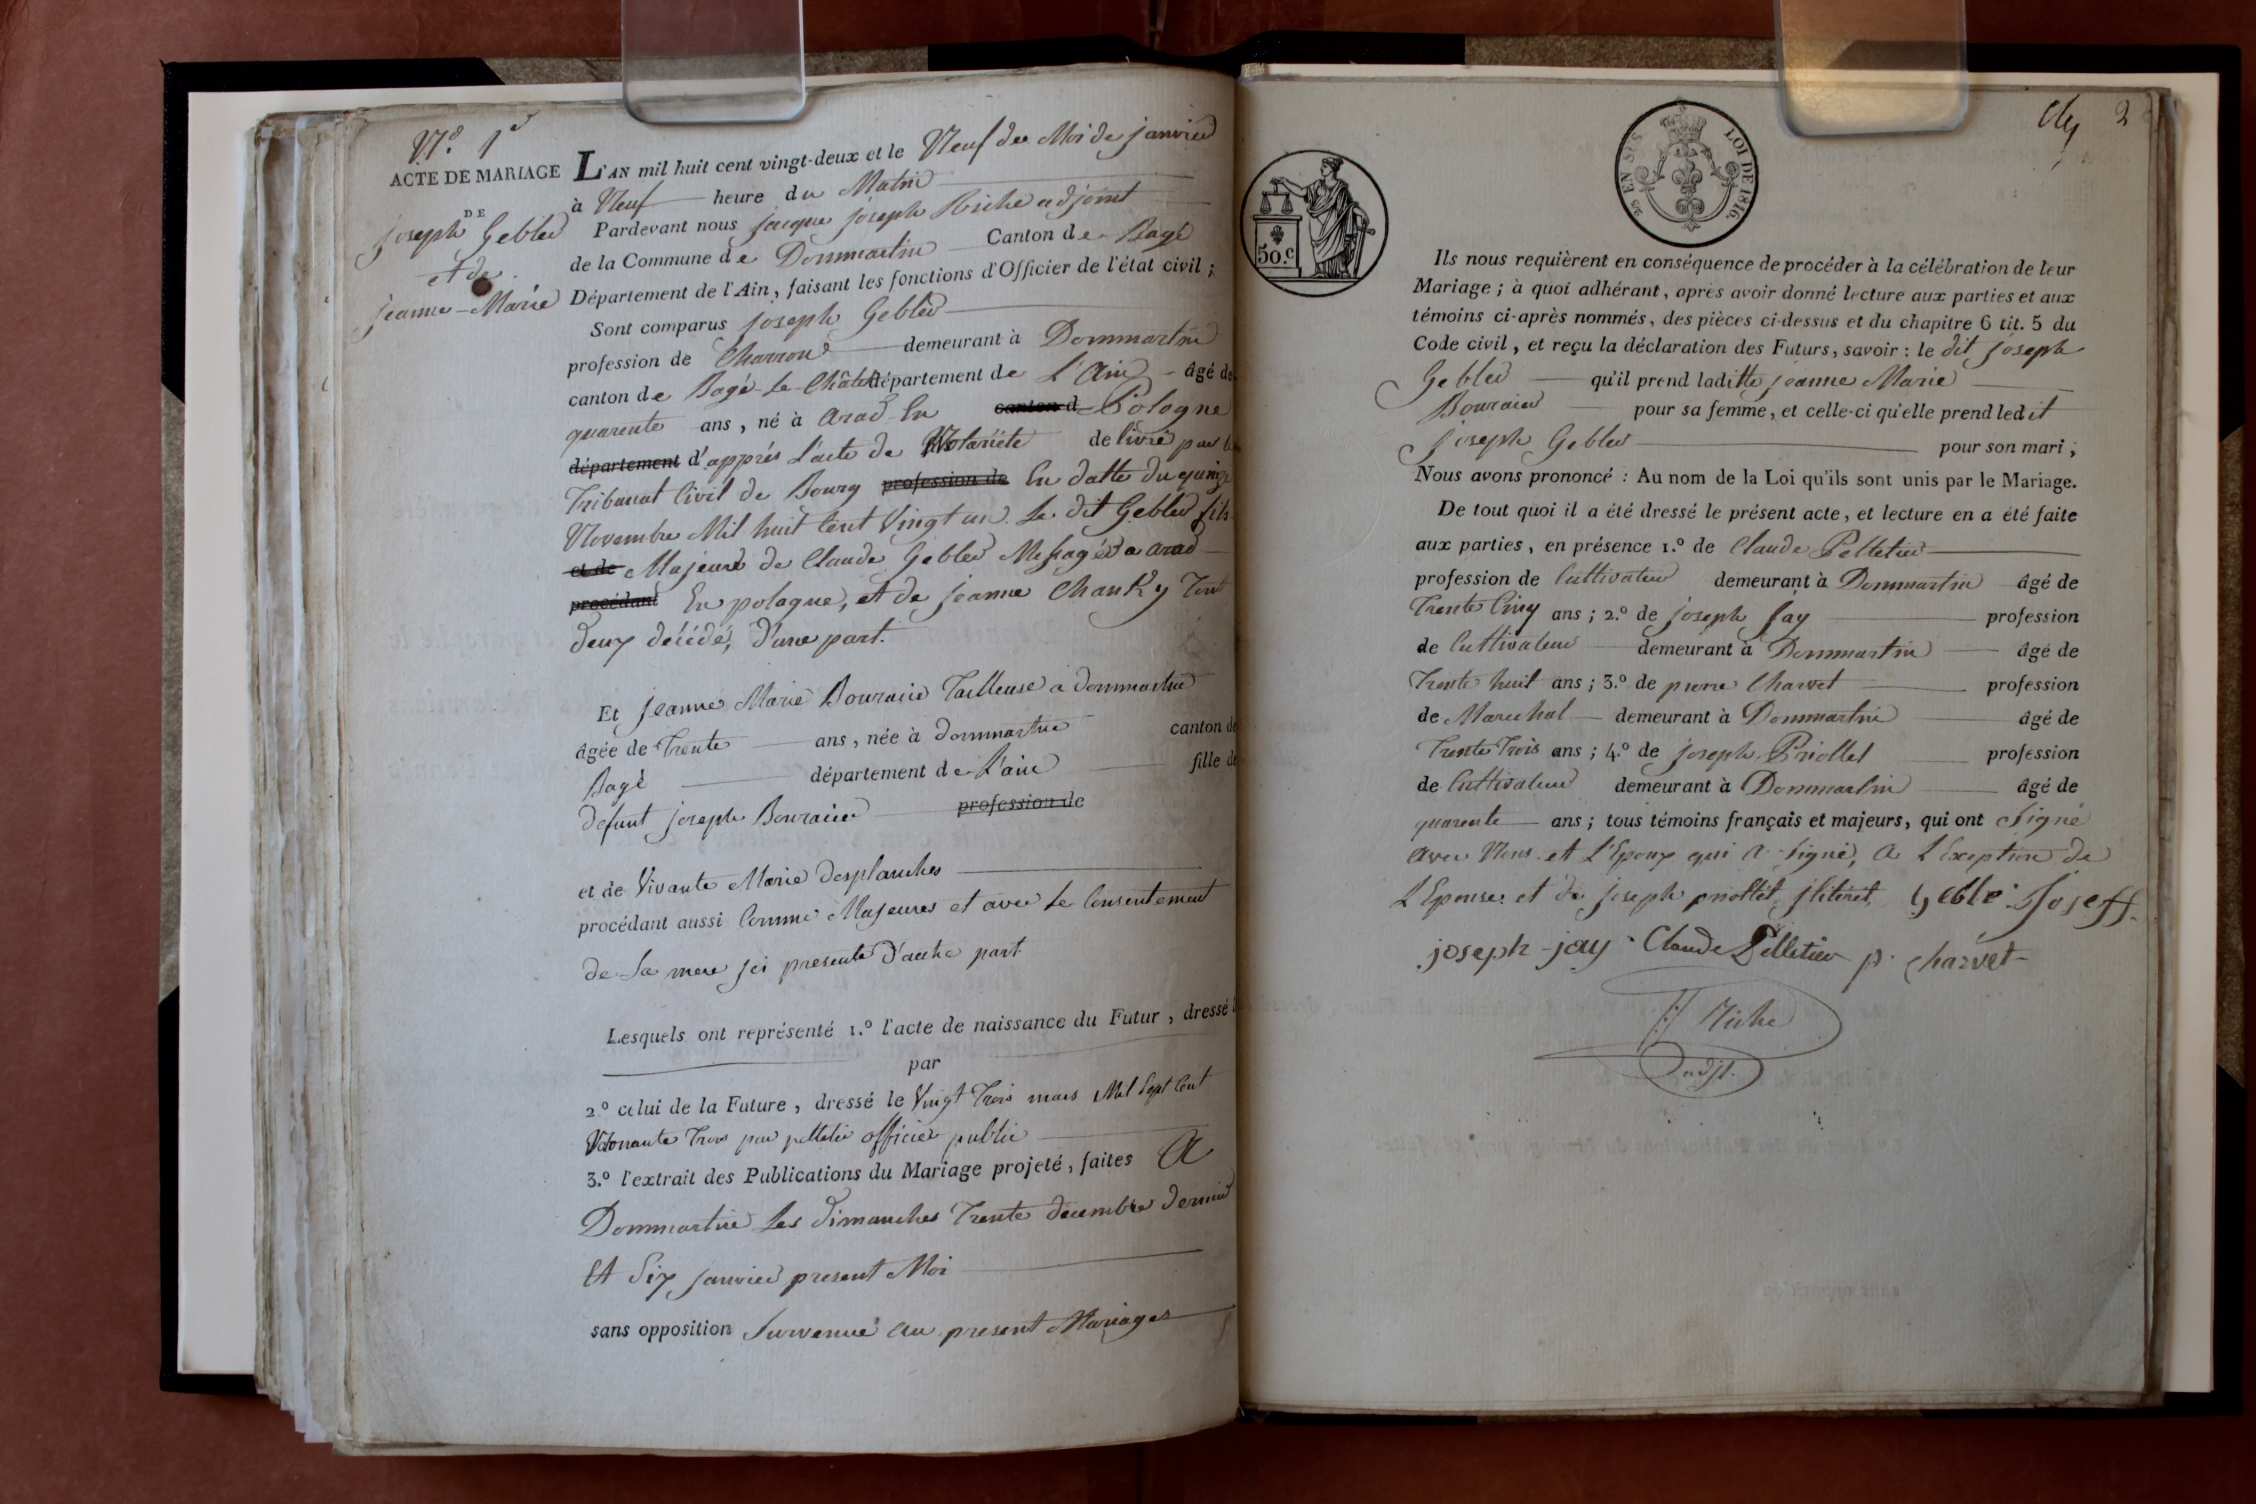 N.º 1er
ACTE DE MARIAGE
DE
joseph Gebler
et de
jeanne-Marie
L'AN mil huit cent vingt-deux et le Neuf du Moi de janvier
à Neuf heure du Matin
Pardevant nous jacque joseph Riche adjoint
de la Commune de Dommartin Canton de Bagé
Département de l'Ain, faisant les fonctions d'Officier de l'état civil ;
Sont comparus joseph Gebler
profession de Charron demeurant à Dommartin
canton de Bagé-le-Châtel département de L'Ain âgé de
quarente ans, né à arad En canton d Pologne
département d'apprés L'acte de Notariéte delivré par le
Tribunal Civil de Bourg profession de En datte du quinze
Novembre Mil huit Cent Vingt un. Le dit Gebler fils
et de Majeur de Claude Gebler Messager a arad
procédant En pologne, et de jeanne Chanky Tout
deux décédé, D'une part.
Et jeanne Marie Bouraier Tailleuse a dommartin
âgée de Trente ans, née à dommartin canton de
Bagé département de L'ain fille de
defunt joseph Bouraier profession de
et de Vivante Marie desplanches
procédant aussi Comme Majeures et avec le Consentement
de La mere jci presente D'autre part
Lesquels ont représenté 1.º l'acte de naissance du Futur, dressé
par
2.º celui de la Future, dressé le Vingt Trois mars Mil Sept Cent
Nonante Trois par pelletier officier public
3.º l'extrait des Publications du Mariage projeté, faites A
Dommartin Les dimanches Trente decembre dernier
Et Six janvier present Moi
sans opposition Survenue au present Mariages
2
25 EN SUS
LOI DE 1816.
50.c
Ils nous requièrent en conséquence de procéder à la célébration de leur
Mariage ; à quoi adhérant, après avoir donné lecture aux parties et aux
témoins ci-après nommés, des pièces ci-dessus et du chapitre 6 tit. 5 du
Code civil, et reçu la déclaration des Futurs, savoir : le dit joseph
Gebler qu'il prend laditte jeanne Marie
Bouraier pour sa femme, et celle-ci qu'elle prend ledit
joseph Gebler pour son mari ;
Nous avons prononcé : Au nom de la Loi qu'ils sont unis par le Mariage.
De tout quoi il a été dressé le présent acte, et lecture en a été faite
aux parties, en présence 1.º de Claude Pelletier
profession de Cultivateur demeurant à Dommartin âgé de
Trente Cinq ans ; 2.º de joseph jay profession
de Cultivateur demeurant à Dommartin âgé de
Trente huit ans ; 3.º de pierre Charvet profession
de Marechal demeurant à Dommartin âgé de
Trente Trois ans ; 4.º de joseph Priollet profession
de Cultivateur demeurant à Dommartin âgé de
quarente ans ; tous témoins français et majeurs, qui ont Signé
avec Nous et L'Epoux qui a Signé, a L'Exeption de
L'Epouse et de joseph priollet jlitéret, Geble Joseff.
joseph jay Claude Pelletier p. charvet
Riche
adjt.